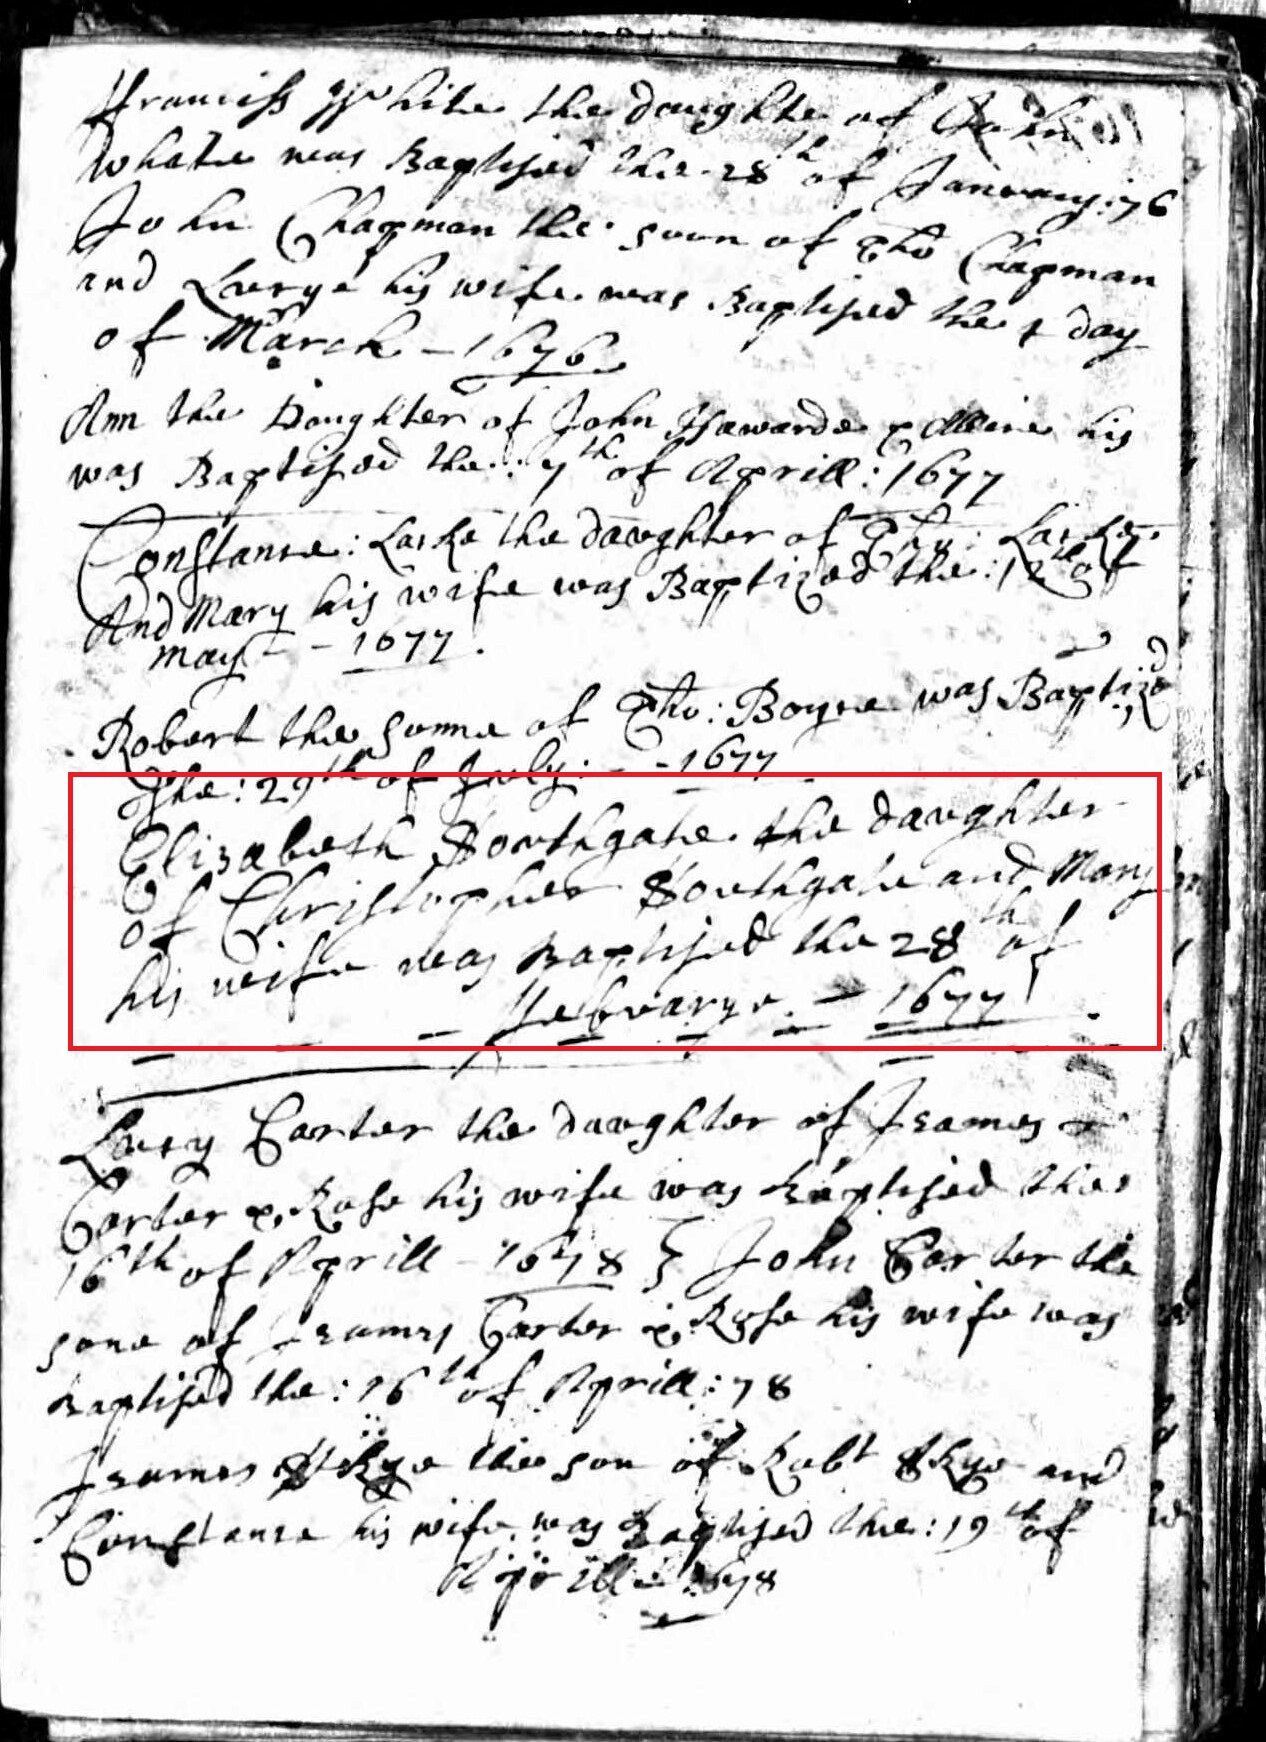 Franciss White the daughter of John
White was Baptised the 28th of January: 76
John Chapman the sonn of Tho Chapman
and his wife was Baptised the 1 day
of March - 1676
Ann the Daughter of John Hawarde & his
was Baptised the: 7th of Aprill: 1677
Constance: Larke the daughter of Tho: Larke
And Mary his wife was Baptized the: 12th of
may - - 1677.
Robert the sonne of Tho: Boyse was Baptizd
the: 29th of July: - - 1677
Elizabeth Southgate the daughter
of Christopher Southgate and Mary
his wife was Baptised the 28th of
- February - 1677
Lucy Carter the daughter of Jeames
Carter & Rose his wife was Baptised the
16th of Aprill - 1678 } John Carter the
sone of Jeames Carter & Rose his wife was
Baptised the: 16th of Aprill: 78
Jeames Skye the son of Robt Skye and
Constance his wife was Baptised the: 19th of
Aprill - 1678